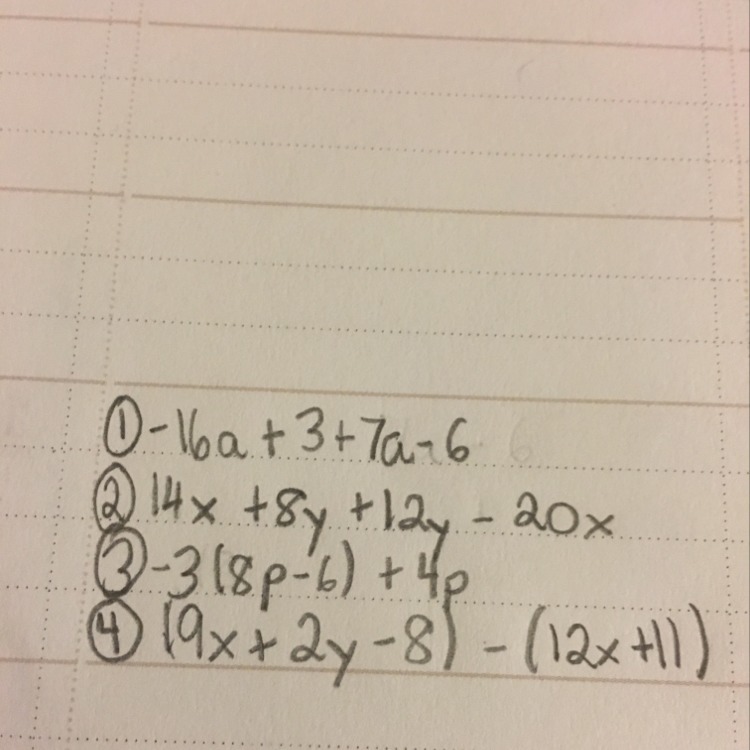 ① -16a + 3 + 7a - 6
② 14x + 8y + 12y - 20x
③ -3(8p - 6) + 4p
④ (9x + 2y - 8) - (12x + 11)